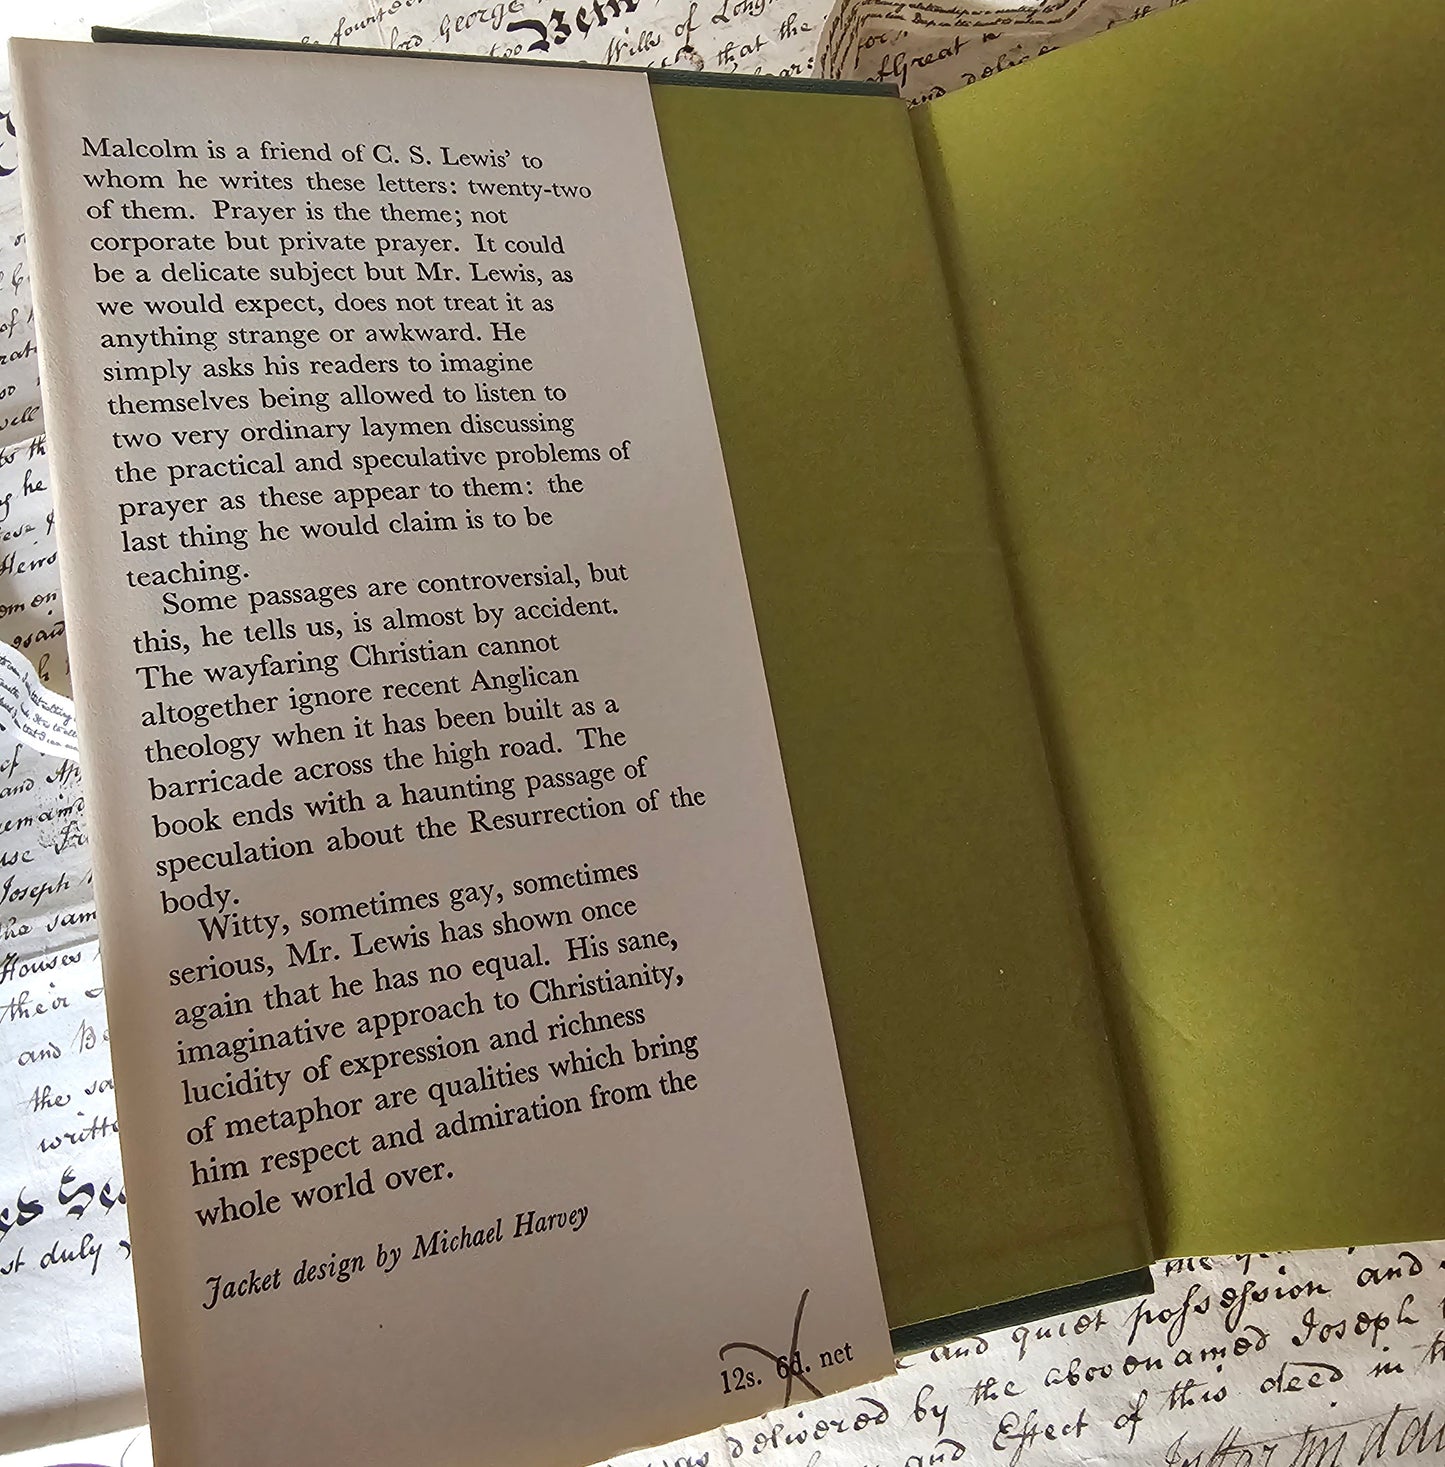 Malcolm is a friend of C. S. Lewis' to
whom he writes these letters: twenty-two
of them. Prayer is the theme; not
corporate but private prayer. It could
be a delicate subject but Mr. Lewis, as
we would expect, does not treat it as
anything strange or awkward. He
simply asks his readers to imagine
themselves being allowed to listen to
two very ordinary laymen discussing
the practical and speculative problems of
prayer as these appear to them: the
last thing he would claim is to be
teaching.
Some passages are controversial, but
this, he tells us, is almost by accident.
The wayfaring Christian cannot
altogether ignore recent Anglican
theology when it has been built as a
barricade across the high road. The
book ends with a haunting passage of
speculation about the Resurrection of the
body.
Witty, sometimes gay, sometimes
serious, Mr. Lewis has shown once
again that he has no equal. His sane,
imaginative approach to Christianity,
lucidity of expression and richness
of metaphor are qualities which bring
him respect and admiration from the
whole world over.
Jacket design by Michael Harvey
12s. 6d. net
George
Wills of
that the
Great
and
Joseph
the sam
Houses
their
and
the
duly
and quiet possession and
delivered by the abovenamed Joseph
and Effect of this deed in